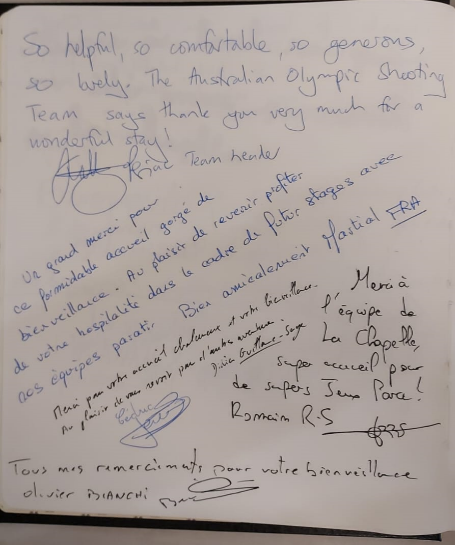 So helpful, so comfortable, so generous,
so lovely. The Australian Olympic Shooting
Team says thank you very much for a
wonderful stay!
Team Leader
Un grand merci pour
ce formidable accueil gorgé de
bienveillance. Au plaisir de revenir profiter
de votre hospitalité dans le cadre de futur stages avec
nos équipes paratir. Bien amicalement Martial FRA
Merci pour votre accueil chaleureux et votre bienveillance.
Au plaisir de vous revoir pour d'autres aventures.
Merci à
l'équipe de
La Chapelle,
super accueil pour
de supers Jeux Para!
Romain R.S
Tous mes remerciments pour votre bienveillance
olivier BIANCHI